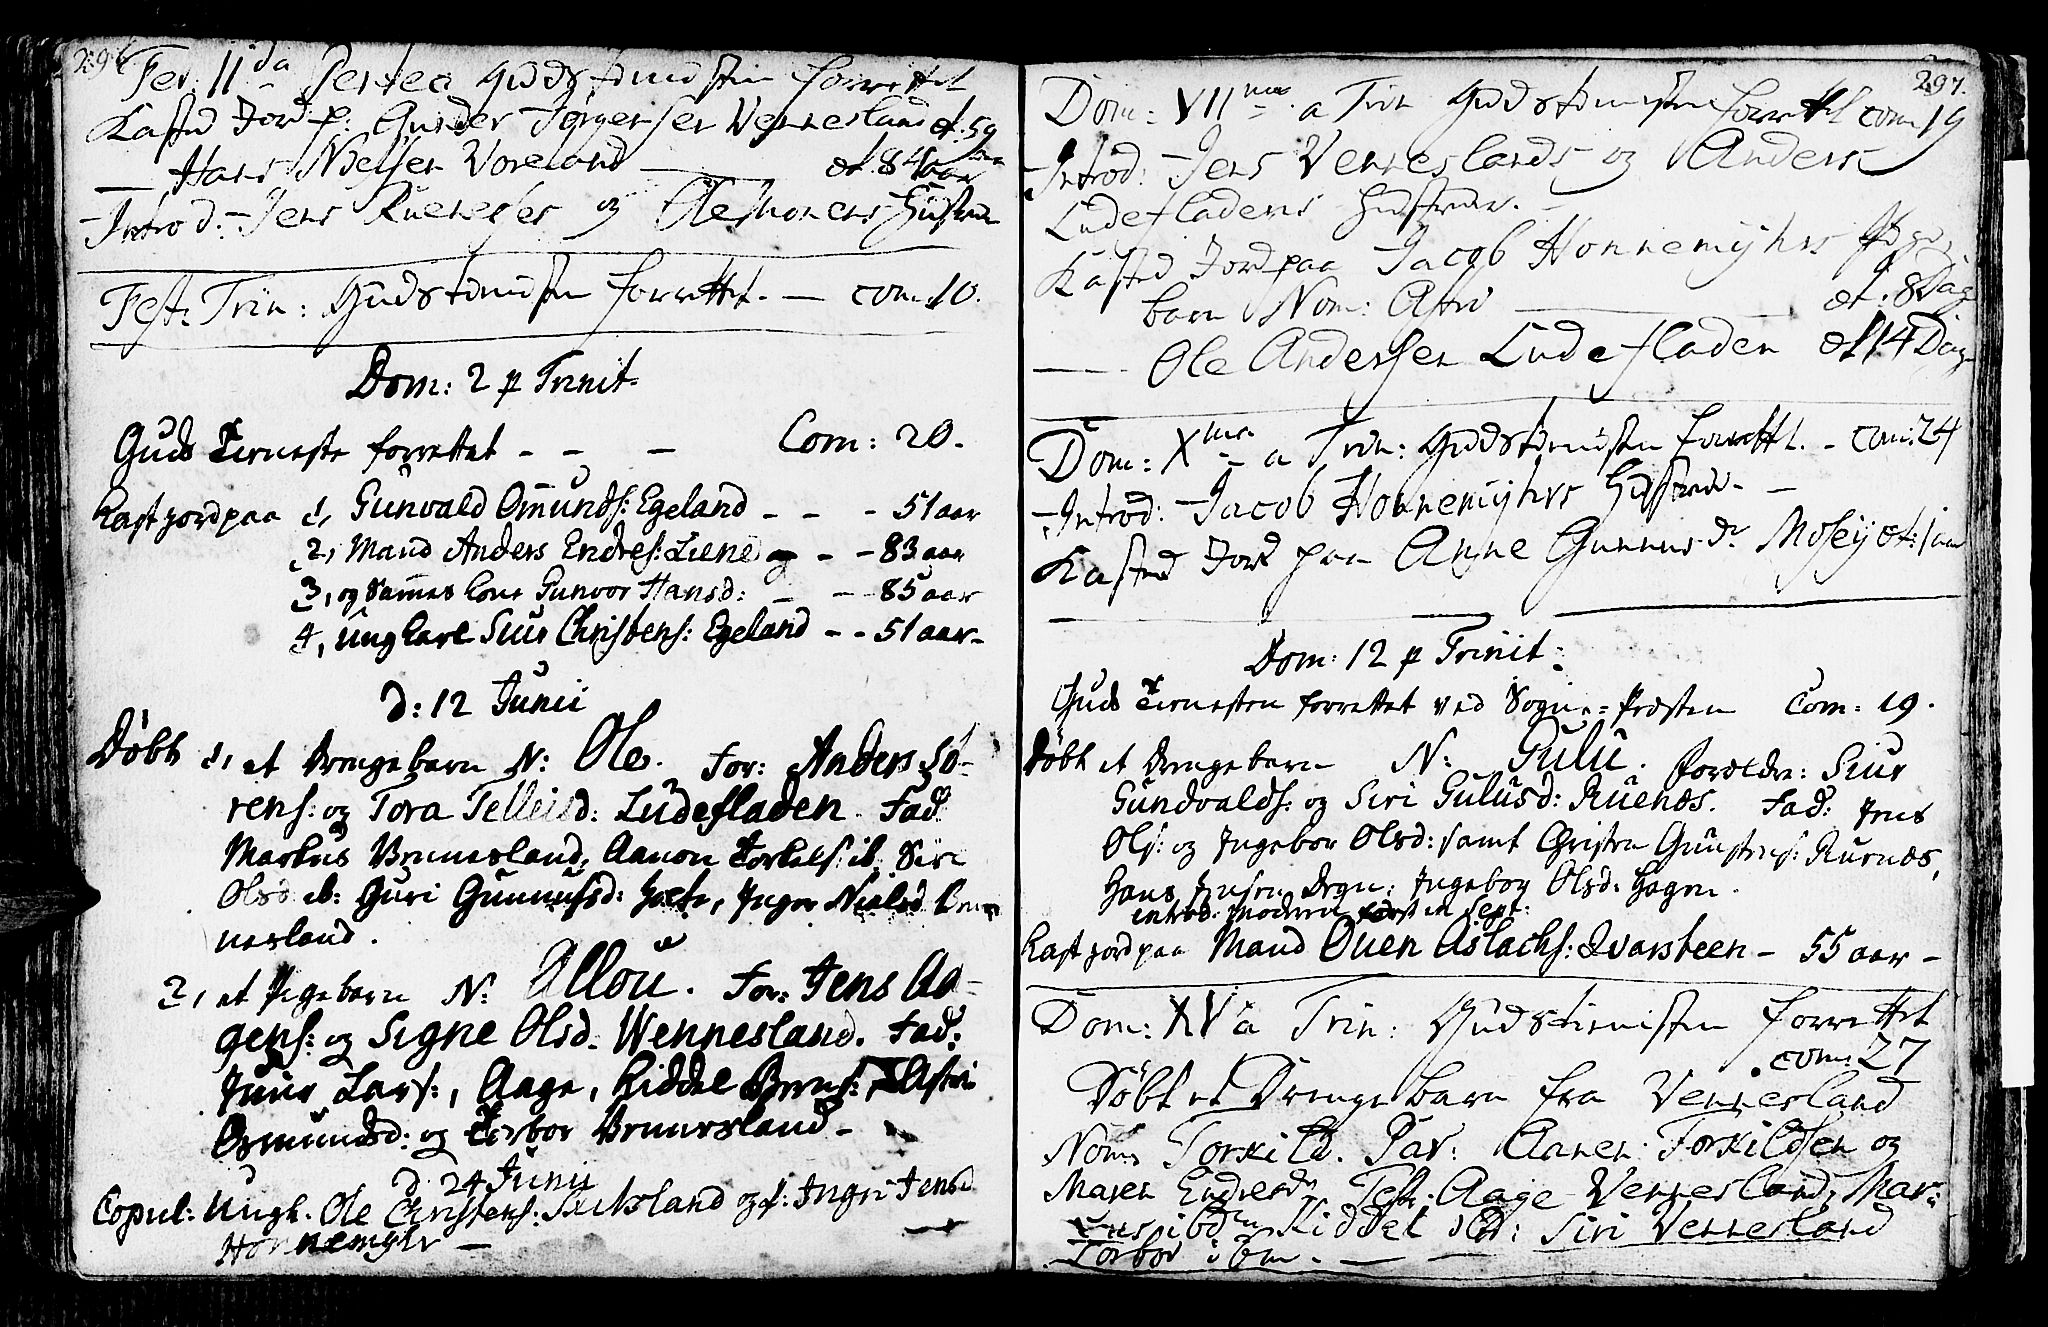 296
Fer: 11da Pentec Gudstienisten forrettet
Kasted Jord p: Gunder Jørgensen Vennesland æt. 59
— Hans Nielsen Voreland — æt. 84 aar
Introd: Jens Ruenes og Ole Hustrue
Fest: Trin: Gudstienisten forrettet. — com. 10.
Dom: 2 p Trinit:
Guds Tieneste forrettet - - — Com: 20.
Kast jord paa 1, Gunvald Omunds: Egeland - - - 51 aar
2, Mand Anders Endres: Liene - - 83 aar
3, og Sammes Kone Gunvor Hansd: - - - 85 aar
4, Ung Karl Siur Christens: Egeland - - 51 aar -
d: 12 Junii
Døbt 1, et Drengebarn N: Ole. For: Anders Sø-
rens: og Tora Telleisd: Ludefladen. Fad:
Markus Vennesland, Aanon Torkels: ib. Siri
Olsd ib: Guri Gunnufsd: Inger Nielsd Ven
nesland.
2, et Pigebarn N: Allou. For: Jens Aa-
gens: og Signe Olsd. Wennesland. Fad:
Lars:, Aage, Kiddel Astri
Osmundsd: og Torbor Vennesland -
d. 24 Junii
Copul: Ungk. Ole Christens: og p: Ingri Jensd
Honnemyhr —
297.
Dom: VIIma a Trin Gudstienisten forrettet com 19
Introd: Jens Venneslands og Anders
Ludefladens Hustruer.
Kasted Jord paa Jacob Honnemyhrs
barn Nom: Astri — æt: 8 Dag
— Ole Andersen Ludefladen æt 14 Dag
Dom: Xma a Trin: Gudstienisten forrettet. - com: 24
Introd: Jacob Honnemyhrs Hustrue - —
Kasted Jord paa Anne Gunnusdr Mosey æt: 1 aar
Dom: 12 p Trinit:
Guds Tienesten forrettet ved Sogne-Præsten Com: 19.
Døbt et Drengebarn N: Gulu. Forældre: Siur
Gundvalds: og Siri Gulusd: Ruenæs. Fad: Jens
Ols: og Ingebor Olsd: samt Christen Ruenæs,
Hans Jensen Ingebor Olsd: Hagen.
introd: Moderen først in Sept:
Kast jord paa Mand Ouen Aslachs: Qvarsteen - 55 aar -
Dom: XV a Trin: Gudstienisten forrettet
com: 27
Døbt et Drengebarn fra Vennesland
Nom: Torkild. Par: Aanen Torkildsen og
Maren Endresdr Test: Aage Vennesland, Mar:
ens ibdm Kiddel ibd: Siri Vennesland
Torbor ibm. — —